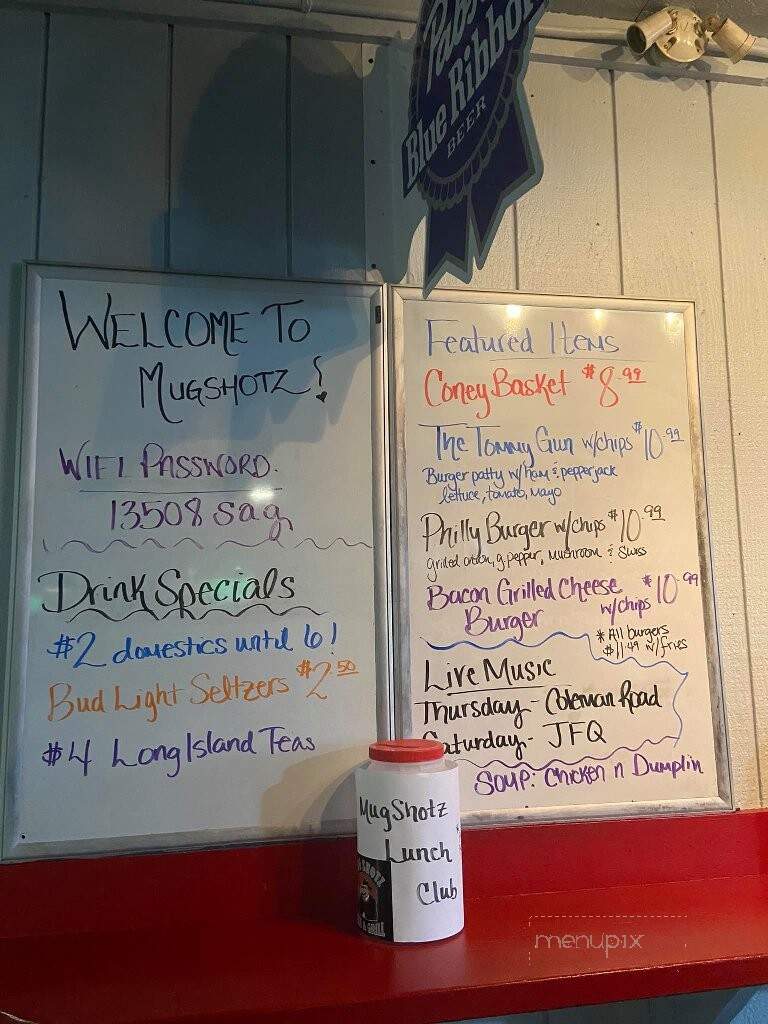 Pabst
Blue Ribbon
BEER
WELCOME TO
MUGSHOTZ!
WIFI PASSWORD.
13508 sag
Drink Specials
$2 domestics until 6!
Bud Light Seltzers $2.50
$4 Long Island Teas
Featured Items
Coney Basket $8.99
The Tommy Gun w/chips $10.99
Burger patty w/ ham & pepperjack
lettuce, tomato, mayo
Philly Burger w/chips $10.99
grilled onion, g.pepper, mushroom & Swiss
Bacon Grilled Cheese $10.99
Burger w/chips
* All burgers
$11.49 w/fries
Live Music
Thursday - Coleman Road
Saturday - JFQ
SOUP: Chicken n Dumplin
MugShotz
Lunch
Club
menupix